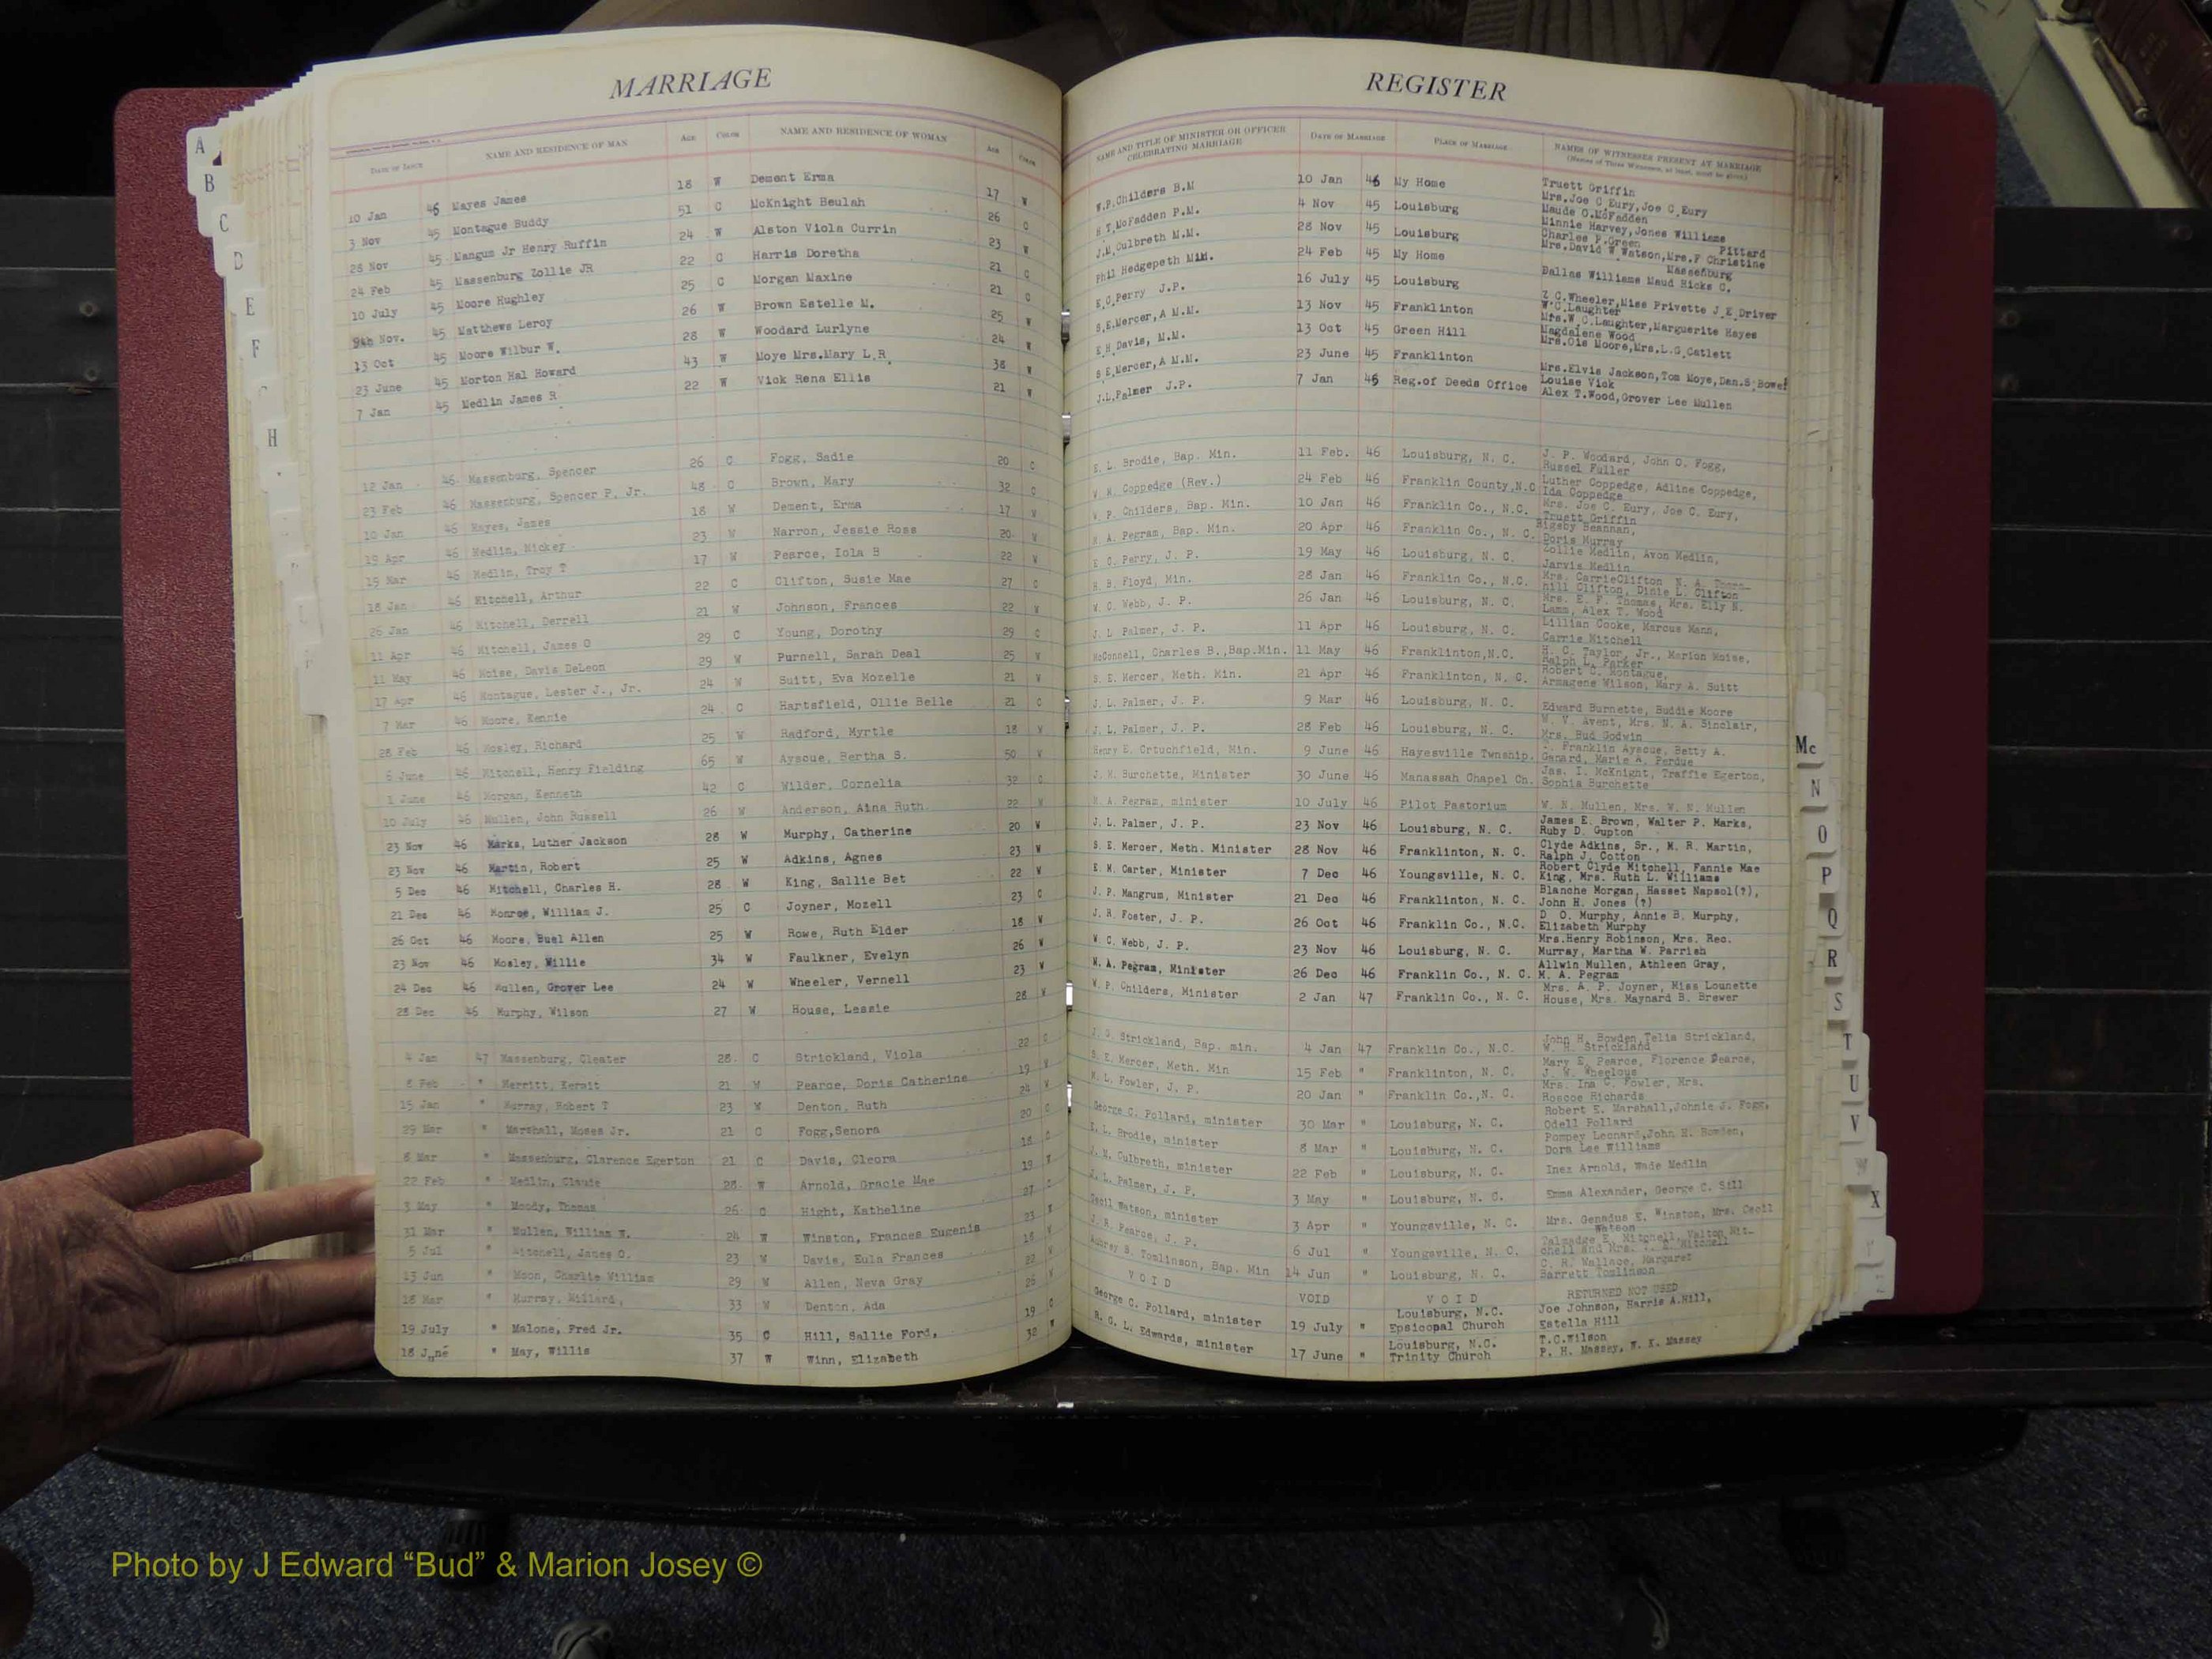 MARRIAGE
DATE OF ISSUE NAME AND RESIDENCE OF MAN AGE COLOR NAME AND RESIDENCE OF WOMAN AGE COLOR
10 Jan 46 Mayes James 18 W Dement Erma 17 W
3 Nov 45 Montague Buddy 51 C McKnight Beulah 26 C
28 Nov 45 Mangum Jr Henry Ruffin 24 W Alston Viola Currin 23 W
24 Feb 45 Massenburg Zollie JR 22 C Harris Doretha 21 C
10 July 45 Moore Hughley 25 C Morgan Maxine 21 C
9th Nov. 45 Matthews Leroy 26 W Brown Estelle M. 25 W
13 Oct 45 Moore Wilbur W. 28 W Woodard Lurlyne 24 W
23 June 45 Morton Hal Howard 43 W Moye Mrs.Mary L R. 38 W
7 Jan 45 Medlin James R 22 W Vick Rena Ellis 21 W
12 Jan 46 Massenburg, Spencer 26 C Fogg, Sadie 20 C
23 Feb 46 Massenburg, Spencer P. Jr. 48 C Brown, Mary 32 C
10 Jan 46 Hayes, James 18 W Dement, Erma 17 W
19 Apr 46 Medlin, Mickey 23 W Narron, Jessie Ross 20 W
15 Mar 46 Medlin, Troy T 17 W Pearce, Iola B 22 W
18 Jan 46 Mitchell, Arthur 22 C Clifton, Susie Mae 27 C
26 Jan 46 Mitchell, Derrell 21 W Johnson, Frances 22 W
11 Apr 46 Mitchell, James O 29 C Young, Dorothy 29 C
11 May 46 Moise, Davis DeLeon 29 W Purnell, Sarah Deal 25 W
17 Apr 46 Montague, Lester J., Jr. 24 W Suitt, Eva Mozelle 21 W
7 Mar 46 Moore, Kennie 24 C Hartsfield, Ollie Belle 21 C
28 Feb 46 Mosley, Richard 25 W Radford, Myrtle 18 W
6 June 46 Mitchell, Henry Fielding 65 W Ayscue, Bertha S. 50 W
1 June 46 Morgan, Kenneth 42 C Wilder, Cornelia 32 C
10 July 46 Mullen, John Russell 26 W Anderson, Aina Ruth 22 W
23 Nov 46 Marks, Luther Jackson 28 W Murphy, Catherine 20 W
23 Nov 46 Martin, Robert 25 W Adkins, Agnes 23 W
5 Dec 46 Mitchell, Charles H. 28 W King, Sallie Bet 22 W
21 Dec 46 Monroe, William J. 25 C Joyner, Mozell 23 C
26 Oct 46 Moore, Buel Allen 25 W Rowe, Ruth Elder 18 W
23 Nov 46 Mosley, Willie 34 W Faulkner, Evelyn 26 W
24 Dec 46 Mullen, Grover Lee 24 W Wheeler, Vernell 23 W
28 Dec 46 Murphy, Wilson 27 W House, Lessie 28 W
4 Jan 47 Massenburg, Cleater 28 C Strickland, Viola 22 C
8 Feb " Merritt, Kermit 21 W Pearce, Doris Catherine 19 W
15 Jan " Murray, Robert T 23 W Denton, Ruth 24 W
29 Mar " Marshall, Moses Jr. 21 C Fogg,Senora 20 C
8 Mar " Massenburg, Clarence Egerton 21 C Davis, Cleora 18 C
22 Feb " Medlin, Claude 28 W Arnold, Gracie Mae 19 W
3 May " Moody, Thomas 26 C Hight, Katheline 27 C
31 Mar " Mullen, William W. 24 W Winston, Frances Eugenia 23 W
5 Jul " Mitchell, James O. 23 W Davis, Eula Frances 18 W
13 Jun " Moon, Charlie William 29 W Allen, Neva Gray 22 W
18 Mar " Murray, Millard, 33 W Denton, Ada 26 W
19 July " Malone, Fred Jr. 35 C Hill, Sallie Ford, 19 C
18 June " May, Willis 37 W Winn, Elizabeth 32 W
REGISTER
NAME AND TITLE OF MINISTER OR OFFICER CELEBRATING MARRIAGE DATE OF MARRIAGE PLACE OF MARRIAGE NAMES OF WITNESSES PRESENT AT MARRIAGE
(Names of Three Witnesses, at least, must be given)
W.P.Childers B.M 10 Jan 46 My Home Truett Griffin
Mrs.Joe C Eury,Joe C Eury
H T.McFadden P.M. 4 Nov 45 Louisburg Maude O.McFadden
Minnie Harvey,Jones Williams
J.M.Culbreth M.M. 28 Nov 45 Louisburg Charles P.Green Pittard
Mrs.David W Watson,Mrs.F Christine
Phil Hedgepeth Min. 24 Feb 45 My Home Massenburg
E.C.Perry J.P. 16 July 45 Louisburg Dallas Williams Maud Hicks C.
S.E.Mercer,A M.M. 13 Nov 45 Franklinton Z C.Wheeler,Miss Privette J E Driver
W C Laughter
E H Davis, M.M. 13 Oct 45 Green Hill Mrs.W C.Laughter,Marguerite Hayes
Magdalene Wood
Mrs.Ois Moore,Mrs.L.G.Catlett
S E.Mercer,A M.M. 23 June 45 Franklinton Mrs.Elvis Jackson,Tom Moye,Dan.S Bowe
J.L.Palmer J.P. 7 Jan 45 Reg.of Deeds Office Louise Vick
Alex T.Wood,Grover Lee Mullen
E. L. Brodie, Bap. Min. 11 Feb. 46 Louisburg, N. C. J. P. Woodard, John O. Fogg,
Russel Fuller
W. M. Coppedge (Rev.) 24 Feb 46 Franklin County,N.C Luther Coppedge, Adline Coppedge,
Ida Coppedge
W. P. Childers, Bap. Min. 10 Jan 46 Franklin Co., N.C. Mrs. Joe C. Eury, Joe C. Eury,
Truett Griffin
M. A. Pegram, Bap. Min. 20 Apr 46 Franklin Co., N. C. Rigsby Beannan,
Doris Murray
E. C. Perry, J. P. 19 May 46 Louisburg, N. C. Zollie Medlin, Avon Medlin,
Jarvis Medlin
H. B. Floyd, Min. 28 Jan 46 Franklin Co., N.C. Mrs. CarrieClifton
hill Clifton, Dinie L. Clifton
W. C. Webb, J. P. 26 Jan 46 Louisburg, N. C. Mrs. E. F. Thomas, Mrs. Elly N.
Lamm, Alex T. Wood
J. L. Palmer, J. P. 11 Apr 46 Louisburg, N. C. Lillian Cooke, Marcus Mann,
Carrie Mitchell
McConnell, Charles B.,Bap.Min. 11 May 46 Franklinton,N.C. H. C. Taylor, Jr., Marion Moise,
Ralph L. Parker
S. E. Mercer, Meth. Min. 21 Apr 46 Franklinton, N. C. Robert C. Montague,
Armagene Wilson, Mary A. Suitt
J. L. Palmer, J. P. 9 Mar 46 Louisburg, N. C. Edward Burnette, Buddie Moore
J. L. Palmer, J. P. 28 Feb 46 Louisburg, N. C. W. V. Avent, Mrs. N. A. Sinclair,
Mrs. Bud Godwin
Henry E. Crtuchfield, Min. 9 June 46 Hayesville Twnship. Franklin Ayscue, Betty A.
Ganard, Marie A. Perdue
J. M. Burchette, Minister 30 June 46 Manassah Chapel Ch. Jas. I. McKnight, Traffie Egerton,
Sophia Burchette
M. A. Pegram, minister 10 July 46 Pilot Pastorium W. N. Mullen, Mrs. W. N. Mullen
J. L. Palmer, J. P. 23 Nov 46 Louisburg, N. C. James E. Brown, Walter P. Marks,
Ruby D. Gupton
S. E. Mercer, Meth. Minister 28 Nov 46 Franklinton, N. C. Clyde Adkins, Sr., M. R. Martin,
Ralph J. Cotton
E. M. Carter, Minister 7 Dec 46 Youngsville, N. C. Robert Clyde Mitchell, Fannie Mae
King, Mrs. Ruth L. Williams
J. P. Mangrum, Minister 21 Dec 46 Franklinton, N. C. Blanche Morgan, Hasset Napsol(?),
John H. Jones (?)
J. R. Foster, J. P. 26 Oct 46 Franklin Co., N.C. D O. Murphy, Annie B. Murphy,
Elizabeth Murphy
W. C. Webb, J. P. 23 Nov 46 Louisburg, N. C. Mrs.Henry Robinson, Mrs. Reo.
Murray, Martha W. Parrish
W. A. Pegram, Minister 26 Dec 46 Franklin Co., N. C. Allwin Mullen, Athleen Gray,
M. A. Pegram
W. P. Childers, Minister 2 Jan 47 Franklin Co., N. C. Mrs. A. P. Joyner, Miss Lounette
House, Mrs. Maynard B. Brewer
J. G. Strickland, Bap. min. 4 Jan 47 Franklin Co., N.C. John H. Bowden,Telia Strickland,
W. H. Strickland
S. E. Mercer, Meth. Min 15 Feb " Franklinton, N. C. Mary E. Pearce, Florence Pearce,
J. W. Wheelous
W. L. Fowler, J. P. 20 Jan " Franklin Co.,N. C. Mrs. Ina C. Fowler, Mrs.
Roscoe Richards
George C. Pollard, minister 30 Mar " Louisburg, N. C. Robert E. Marshall,Johnie J. Fogg,
Odell Pollard
E. L. Brodie, minister 8 Mar " Louisburg, N. C. Pompey Leonard,John H. Bowden,
Dora Lee Williams
J. M. Culbreth, minister 22 Feb " Louisburg, N. C. Inez Arnold, Wade Medlin
J. L. Palmer, J. P. 3 May " Louisburg, N. C. Emma Alexander, George C. Sill
Cecil Watson, minister 3 Apr " Youngsville, N. C. Mrs. Genadus E. Winston, Mrs. Cecil
Watson
J. R. Pearce, J. P. 6 Jul " Youngsville, N. C. Talmadge E. Mitchell, Walton Mit-
chell and Mrs. Mitchell
Aubrey S. Tomlinson, Bap. Min 14 Jun " Louisburg, N. C. C. R. Wallace, Margaret
Barrett Tomlinson
V O I D VOID V O I D RETURNED NOT USED
George C. Pollard, minister 19 July " Louisburg, N.C. Joe Johnson, Harris A.Hill,
Epsicopal Church Estella Hill
R. G. L. Edwards, minister 17 June " Louisburg, N.C. T.C.Wilson
Trinity Church P. H. Massey, W. K. Massey
A
B
C
D
E
F
H
Mc
N
O
P
Q
R
S
T
U
V
W
X
Y
Z
Photo by J Edward “Bud” & Marion Josey ©